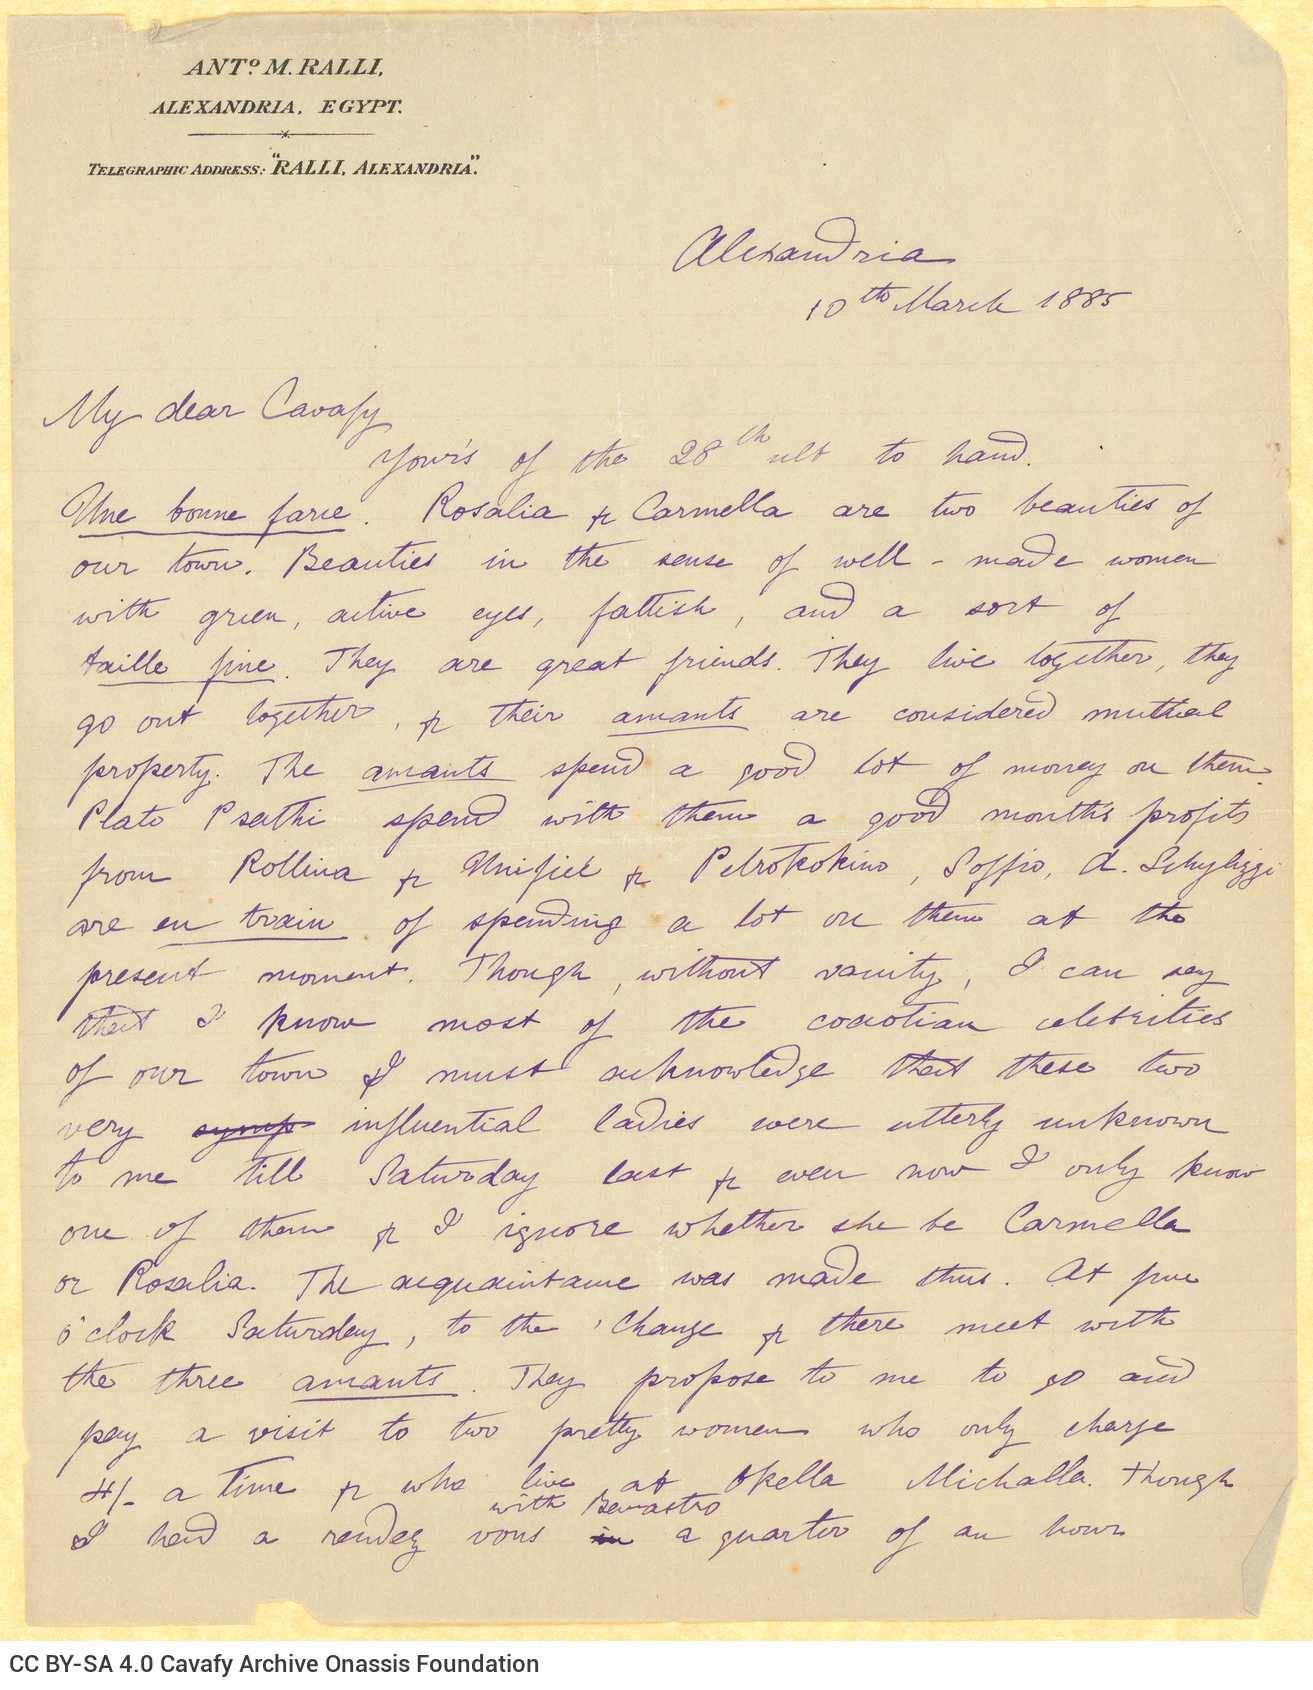 ANTº M. RALLI,
ALEXANDRIA, EGYPT.
TELEGRAPHIC ADDRESS: "RALLI, ALEXANDRIA".
Alexandria
10th March 1885
My dear Cavafy
Your's of the 28th ult to hand.
Une bonne farce. Rosalia & Carmella are two beauties of
our town. Beauties in the sense of well-made women
with green, active eyes, fattish, and a sort of
taille fine. They are great friends. They live together, they
go out together, & their amants are considered mutual
property. The amants spend a good lot of money on them.
Plato Psathi spend with them a good months profits
from Rollina & Unifié & Petrokokino, Soffio, A. Schylizzi
are en train of spending a lot on them at the
present moment. Though, without vanity, I can say
that I know most of the cocotian celebrities
of our town I must acknowledge that these two
very symp influential ladies were utterly unknown
to me till Saturday last & even now I only know
one of them & I ignore whether she be Carmella
or Rosalia. The acquaintance was made thus. At five
o'clock Saturday, to the 'Change & there meet with
the three amants. They propose to me to go and
pay a visit to two pretty women who only charge
4/- a time & who live at Okella Michalla. Though
with Benastro
I had a rendez vous in a quarter of an hour
CC BY-SA 4.0 Cavafy Archive Onassis Foundation